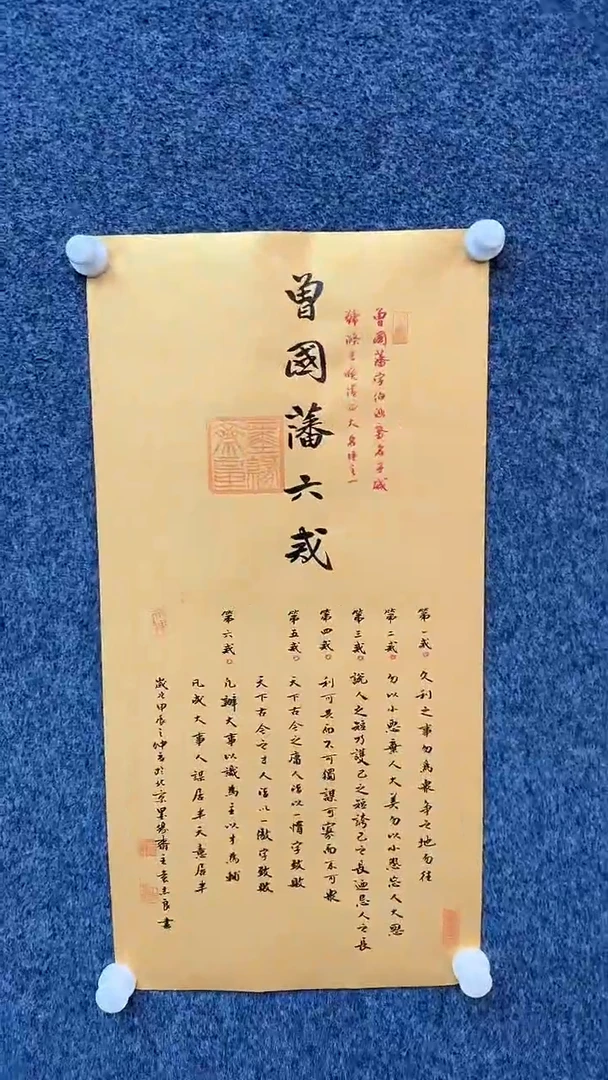 曾國藩六戒
曾國藩字伯涵号
第一戒 久利之事勿為眾爭之地勿往
第二戒 勿以小惡棄人大美勿以小怨忘人大恩
第三戒 說人之短乃護己之短誇己之長迺忌人之長
第四戒 利可共而不可獨謀可寡而不可眾
第五戒 天下古今之庸人皆以一惰字致敗
天下古今之才人皆以一傲字致敗
第六戒 凡辦大事以識為主以才為輔
凡成大事人謀居半天意居半
歲次甲辰之仲 於北京 齋主 書